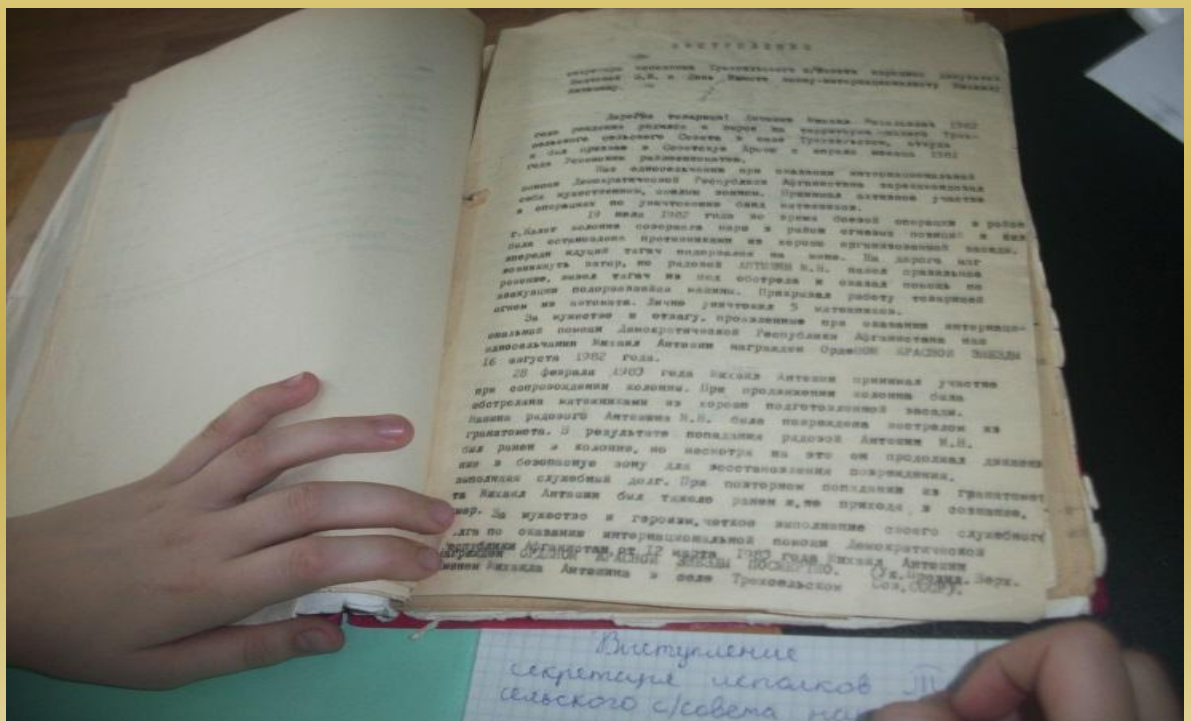 ВЫСТУПЛЕНИЕ
секретаря исполкома с/Совета народных депутатов
воину-интернационалисту Михаилу
Антошину.
товарищи! Антошин Михаил 1962
года рождения родился и вырос на территории нашего
сельского Совета в селе Трехсельском, откуда
и был призван в Советскую Армию в апреле месяце 1981
года
Наш односельчанин при оказании интернациональной
помощи Демократической Республике Афганистана зарекомендовал
себя мужественным, смелым воином. Принимал активное участие
в операциях по уничтожению банд мятежников.
19 1982 года во время боевой операции в районе
колонна совершала марш в район огневых позиций и
была остановлена противниками из хорошо организованной засады.
впереди идущий тягач подорвался на мине. На дороге мог
возникнуть затор, но рядовой АНТОШИН М.Н. нашел правильное
решение, вывел тягач из под обстрела и оказал помощь по
эвакуации подорвавшейся машины. Прикрывал работу товарищей
огнем из автомата. Лично уничтожил 5 мятежников.
За мужество и отвагу, проявленные при оказании интернацио-
ональной помощи Демократической Республики Афганистана наш
односельчанин Михаил Антошин награжден Орденом КРАСНОЙ ЗВЕЗДЫ
16 августа 1982 года.
28 февраля 1983 года Михаил Антошин принимал участие
при сопровождении колонны. При продвижении колонна была
обстреляна мятежниками из хорошо подготовленной засады.
Машина рядового Антошина М.Н. была повреждена выстрелом из
гранатомета. В результате попадания рядовой Антошин М.Н.
был ранен в колонне, но несмотря на это он продолжал движени
ние в безопасную зону для восстановления повреждения,
выполняя служебный долг. При повторном попадании из гранатомет
та Михаил Антошин был тяжело ранен и, не приходя в сознание,
умер. За мужество и героизм, четкое выполнение своего служебного
долга по оказанию интернациональной помощи Демократической
Республики Афганистан, от 12 марта 1983 года Михаил Антошин
награжден ОРДЕНОМ КРАСНОЙ ЗВЕЗДЫ ПОСМЕРТНО. (Ук. Презид. Верх.
Сов. СССР).
именем Михаила Антошина в селе Трехсельском
Выступление
секретаря исполков
сельского с/совета